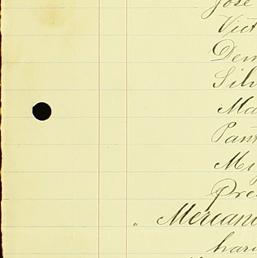 José
Vict
Dem
Silv
Ma
Pan
Mi
Pre
" Mercan
hari